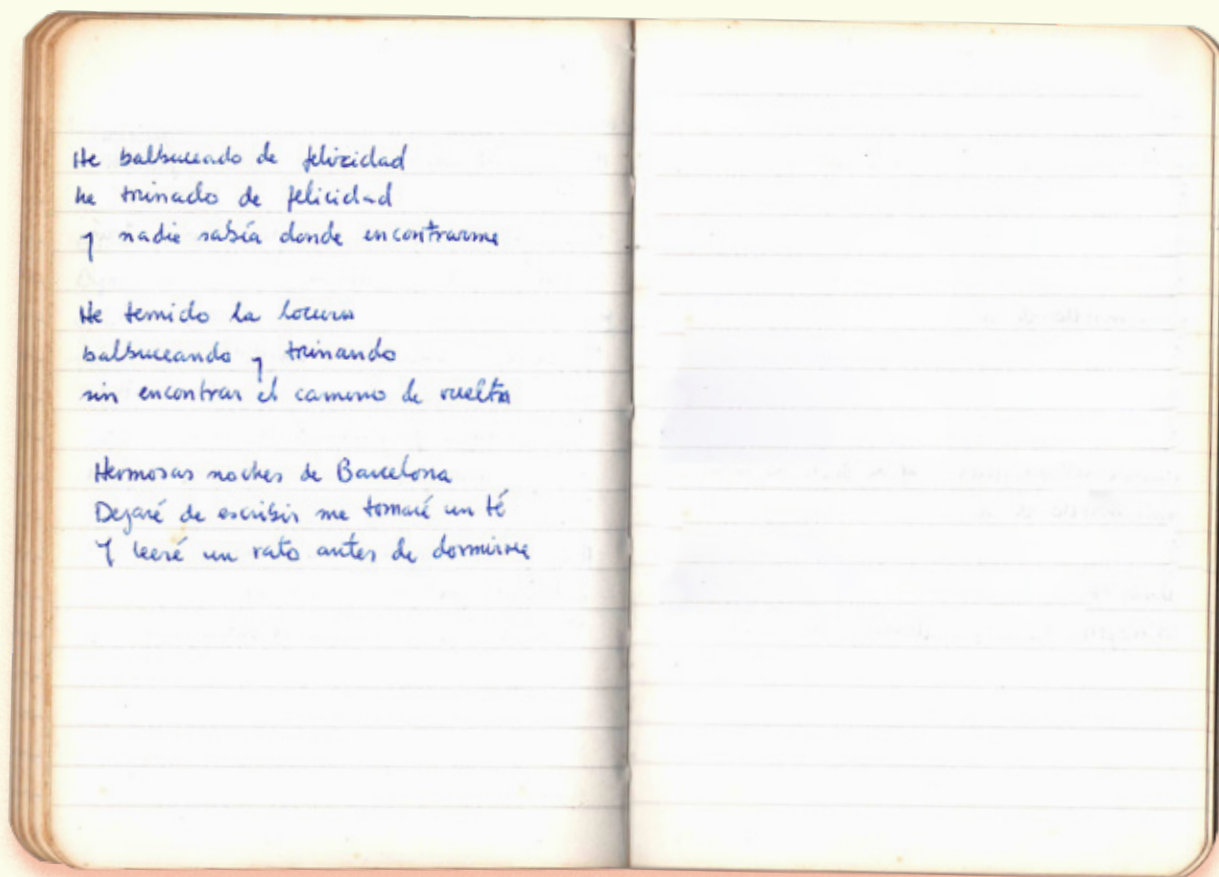 He balbuceado de felicidad
he trinado de felicidad
y nadie sabía donde encontrarme
He temido la locura
balbuceando y trinando
sin encontrar el camino de vuelta
Hermosas noches de Barcelona
Dejaré de escribir me tomaré un té
Y leeré un rato antes de dormirme